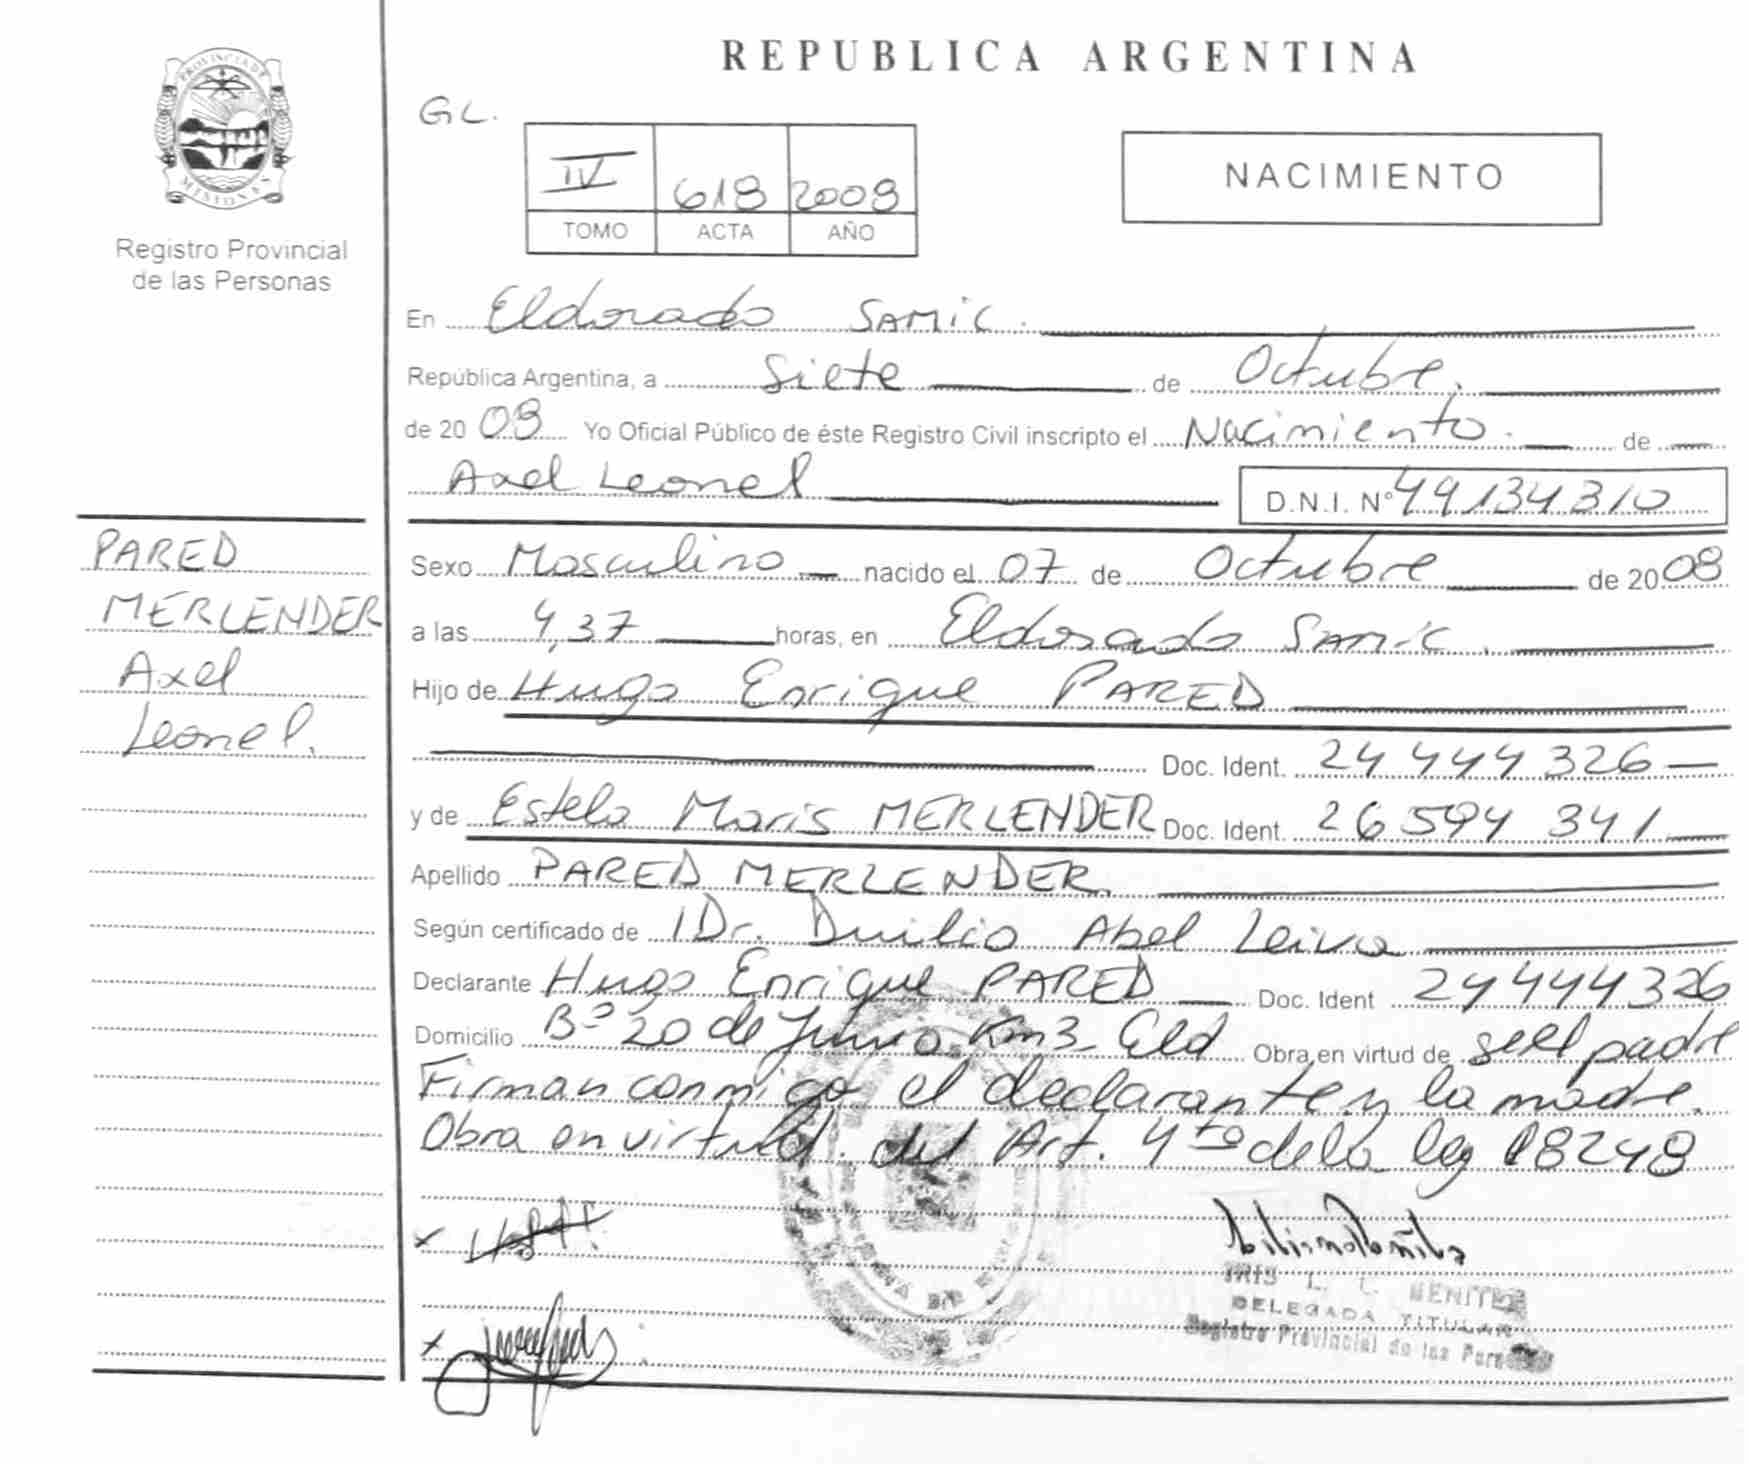 REPUBLICA ARGENTINA
PROVINCIA DE
MISIONES
Registro Provincial
de las Personas
GL.
IV 618 2008
TOMO ACTA AÑO
NACIMIENTO
En Eldorado SAMIC.
República Argentina, a Siete de Octubre.
de 20 08 Yo Oficial Público de éste Registro Civil inscripto el Nacimiento. de
Axel Leonel D.N.I. Nº 49134310
PARED
MERLENDER
Axel
Leonel.
Sexo Masculino nacido el 07 de Octubre de 20 08
a las 4,37 horas, en Eldorado Samic.
Hijo de Hugo Enrique PARED
Doc. Ident. 24 444 326
y de Estela Maris MERLENDER Doc. Ident. 26 594 341
Apellido PARED MERLENDER.
Según certificado de Dr. Duilio Abel Leiva
Declarante Hugo Enrique PARED Doc. Ident 24444326
Domicilio Bº 20 de Junio Km3 Eld Obra en virtud de ser el padre
Firman conmigo el declarante y la madre.
Obra en virtud. del Art. 4to de la ley 18248
IRIS L. BENITEZ
DELEGADA TITULAR
Registro Provincial de las Personas